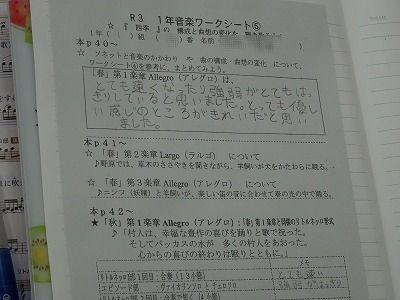 R3　1年音楽ワークシート⑤
☆『四季』の　構成と曲想の変化
1年（　）組（　）番 名前
本p40～
☆　ソネットと音楽のかかわり　や　曲の構成・曲想の変化　について、
ワークシート④を参考に、まとめてみよう。
「春」第1楽章 Allegro（アレグロ）は、
とても速くなったり強弱がとてもは、
きりしていると思いました。とっても優し
い感じのところがきれいだと思い
ました。
本p41～
☆　「春」第2楽章 Largo（ラルゴ）　について
♪野原では、草木のささやきを聞きながら、羊飼いが犬をかたわらに眠る。…
☆　「春」第3楽章 Allegro（アレグロ）　について
♪ニンフ（妖精）と羊飼いが、楽しい笛の音に合わせて春の光の中で踊る。
本p42～
★「秋」第1楽章 Allegro（アレグロ）：「春」第1楽章と同様のリトルネッロ形式
♪「村人は、幸福な豊作の喜びを踊りと歌で祝った。
そしてバッカスの水が　多くの村人をあおった。
心からの喜びの終わりは眠りとともに。」
メモ
リトルネッロ部1回目：合奏（13小節）
とても速い
エピソード部：ヴァイオリンソロ と チェンバロ